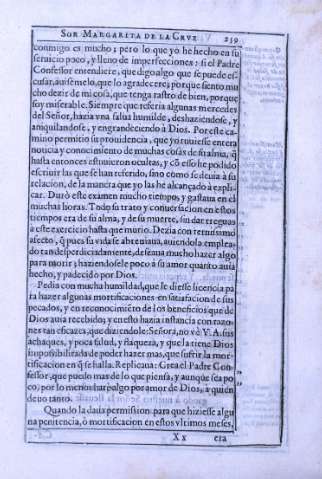 SOR MARGARITA DE LA CRVZ 239
conmigo es mucho; pero lo que yo he hecho en su
seruicio poco, y lleno de imperfecciones: si el Padre
Confessor entendiere, que digo algo que se puede es-
cusar, auisemelo, que lo agradecere; porque siento mu
cho dezir de mi cosa, que tenga rastro de bien, porque
soy miserable. Siempre que referia algunas mercedes
del Señor, hazia vna salua humilde, deshaziendose, y
aniquilandose, y engrandeciendo à Dios. Por este ca-
mino permitio su prouidencia, que yo tuuiesse entera
noticia y conocimiento de muchas cosas de su alma, q̃
hasta entonces estuuieron ocultas, y cõ esso he podido
escriuir las que se han referido, sino como se deuia à su
relacion, de la manera que yo las he alcançado à expli-
car. Durò este examen mucho tiempo, y gastaua en el
muchas horas. Todo su trato y conuersacion en estos
tiempos era de su alma, y de su muerte, sin dar treguas
à este exercicio hasta que murio. Dezia con ternissimo
afecto, q̃ pues su vida se abreuiaua, auiendola emplea-
do tan desperdiciadamente, deseaua mucho hazer algo
para morir; haziendosele poco à su amor quanto auia
hecho, y padecido por Dios.
Pedia con mucha humildad, que le diesse licencia pa
ra hazer algunas mortificaciones en satisfacion de sus
pecados, y en reconocimiento de los beneficios que de
Dios auia recebido; y en esto hazia instancia con razo-
nes tan eficazes, que diziendole: Señora, no vè V. A. sus
achaques, y poca salud, y flaqueza, y que la tiene Dios
imposibilitada de poder hazer mas, que sufrir la mor-
tificacion en q̃ se halla. Replicaua: Crea el Padre Con-
fessor, que puedo mas de lo que piensa, y aunque sea po
co, por lo menos harè algo por amor de Dios, à quien
deuo tanto.
Quando la daua permission para que hiziesse algu
na penitencia, ò mortificacion en estos vltimos meses,
Xx era